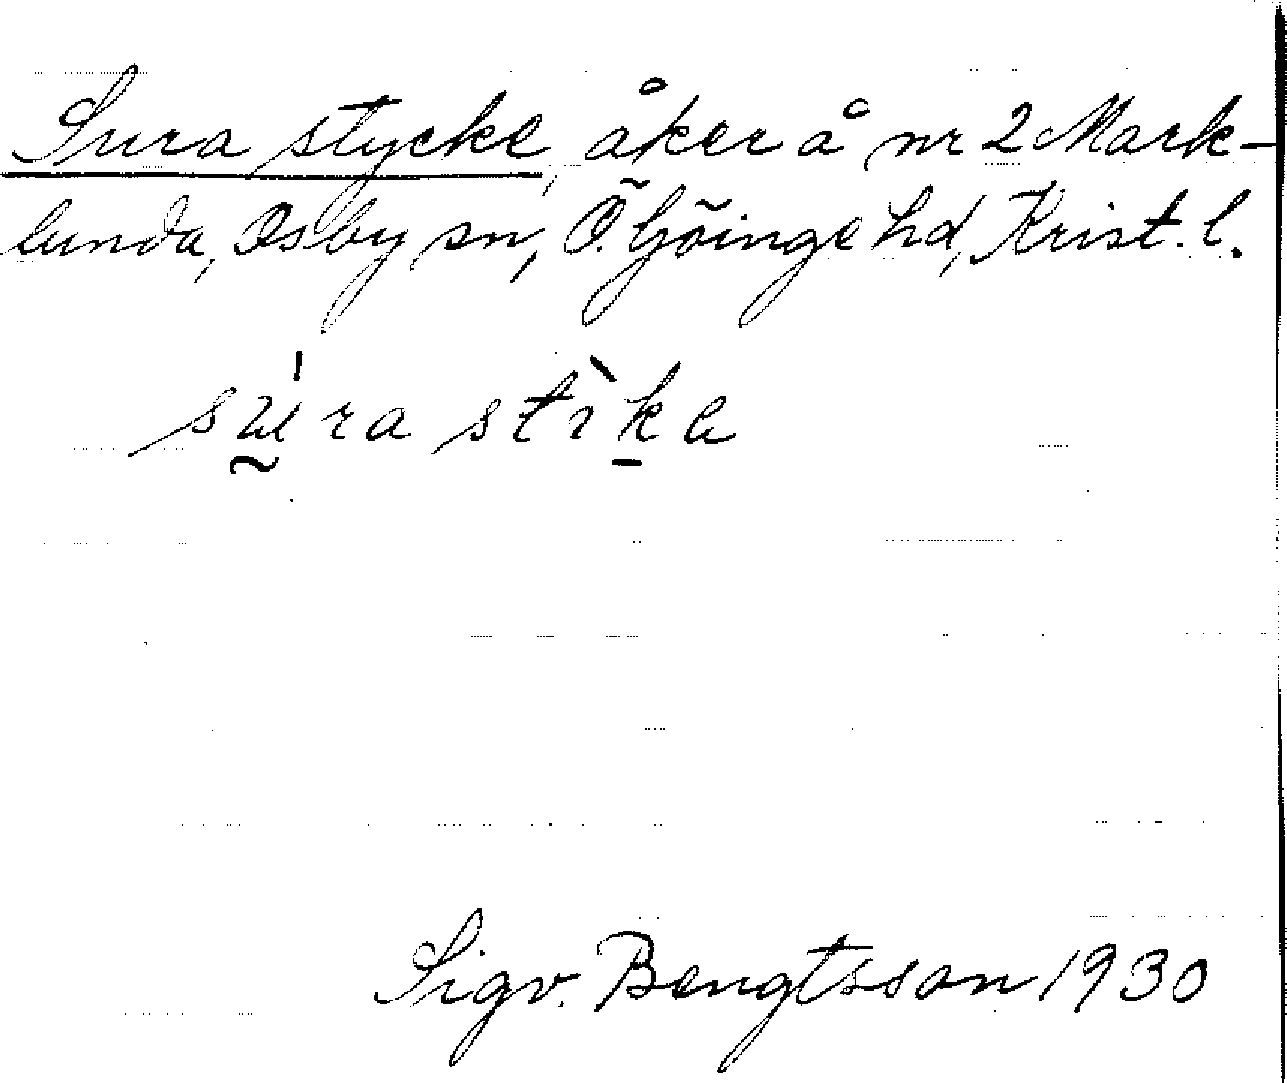 Sura stycke, åker å nr 2 Mark-
lunda, Osby sn, Ö. Göinge hd, Krist. l.
súra stìka
Sigv. Bengtsson 1930